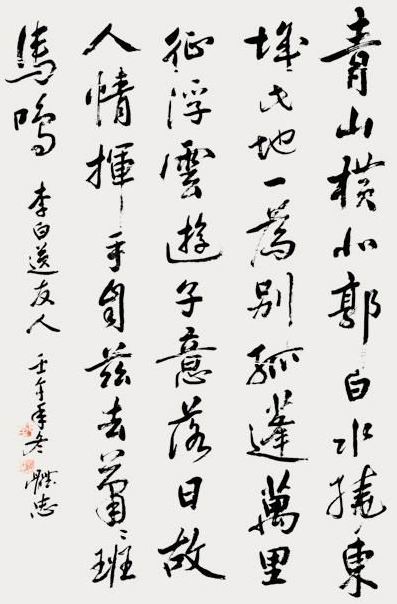 青山横北郭白水撓東
城此地一為别孤蓬萬里
征浮雲遊子意落日故
人情揮手自兹去蕭〻班
馬鳴 李白送友人 壬午年冬 忠